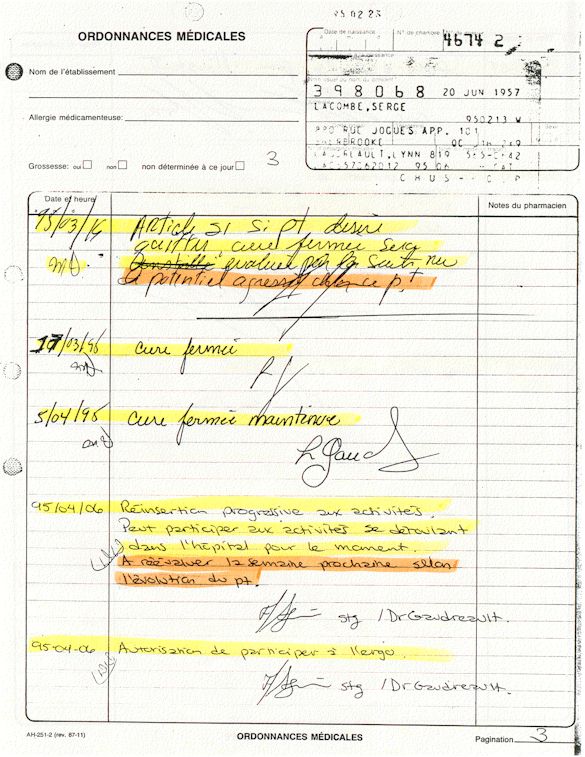 95 02 23
ORDONNANCES MÉDICALES
Date de naissance
N° de chambre
4674 2
Nom de l'établissement
398068 20 JUN 1957
LACOMBE, SERGE
Allergie médicamenteuse:
950213
RUE JOGUES APP. 101
SHERBROOKE
LYNN 819
Grossesse: oui non non déterminée à ce jour
3
CHUS
Date et heure
Notes du pharmacien
95/03/16 Article 31 si pt désire
quitter cure fermée sera
évaluer par la suite vu
potentiel agressif chez ce pt
17/03/95 Cure fermée
5/04/95 Cure fermée maintenue
L Gaud
95/04/06 Réinsertion progressive aux activités.
Peut participer aux activités se déroulant
dans l'hôpital pour le moment.
A réévaluer la semaine prochaine selon
l'évolution du pt.
stg / Dr Gaudreault.
95-04-06 Autorisation de participer à l'ergo.
stg / Dr Gaudreault.
AH-251-2 (rev. 87-11)
ORDONNANCES MÉDICALES
Pagination 3